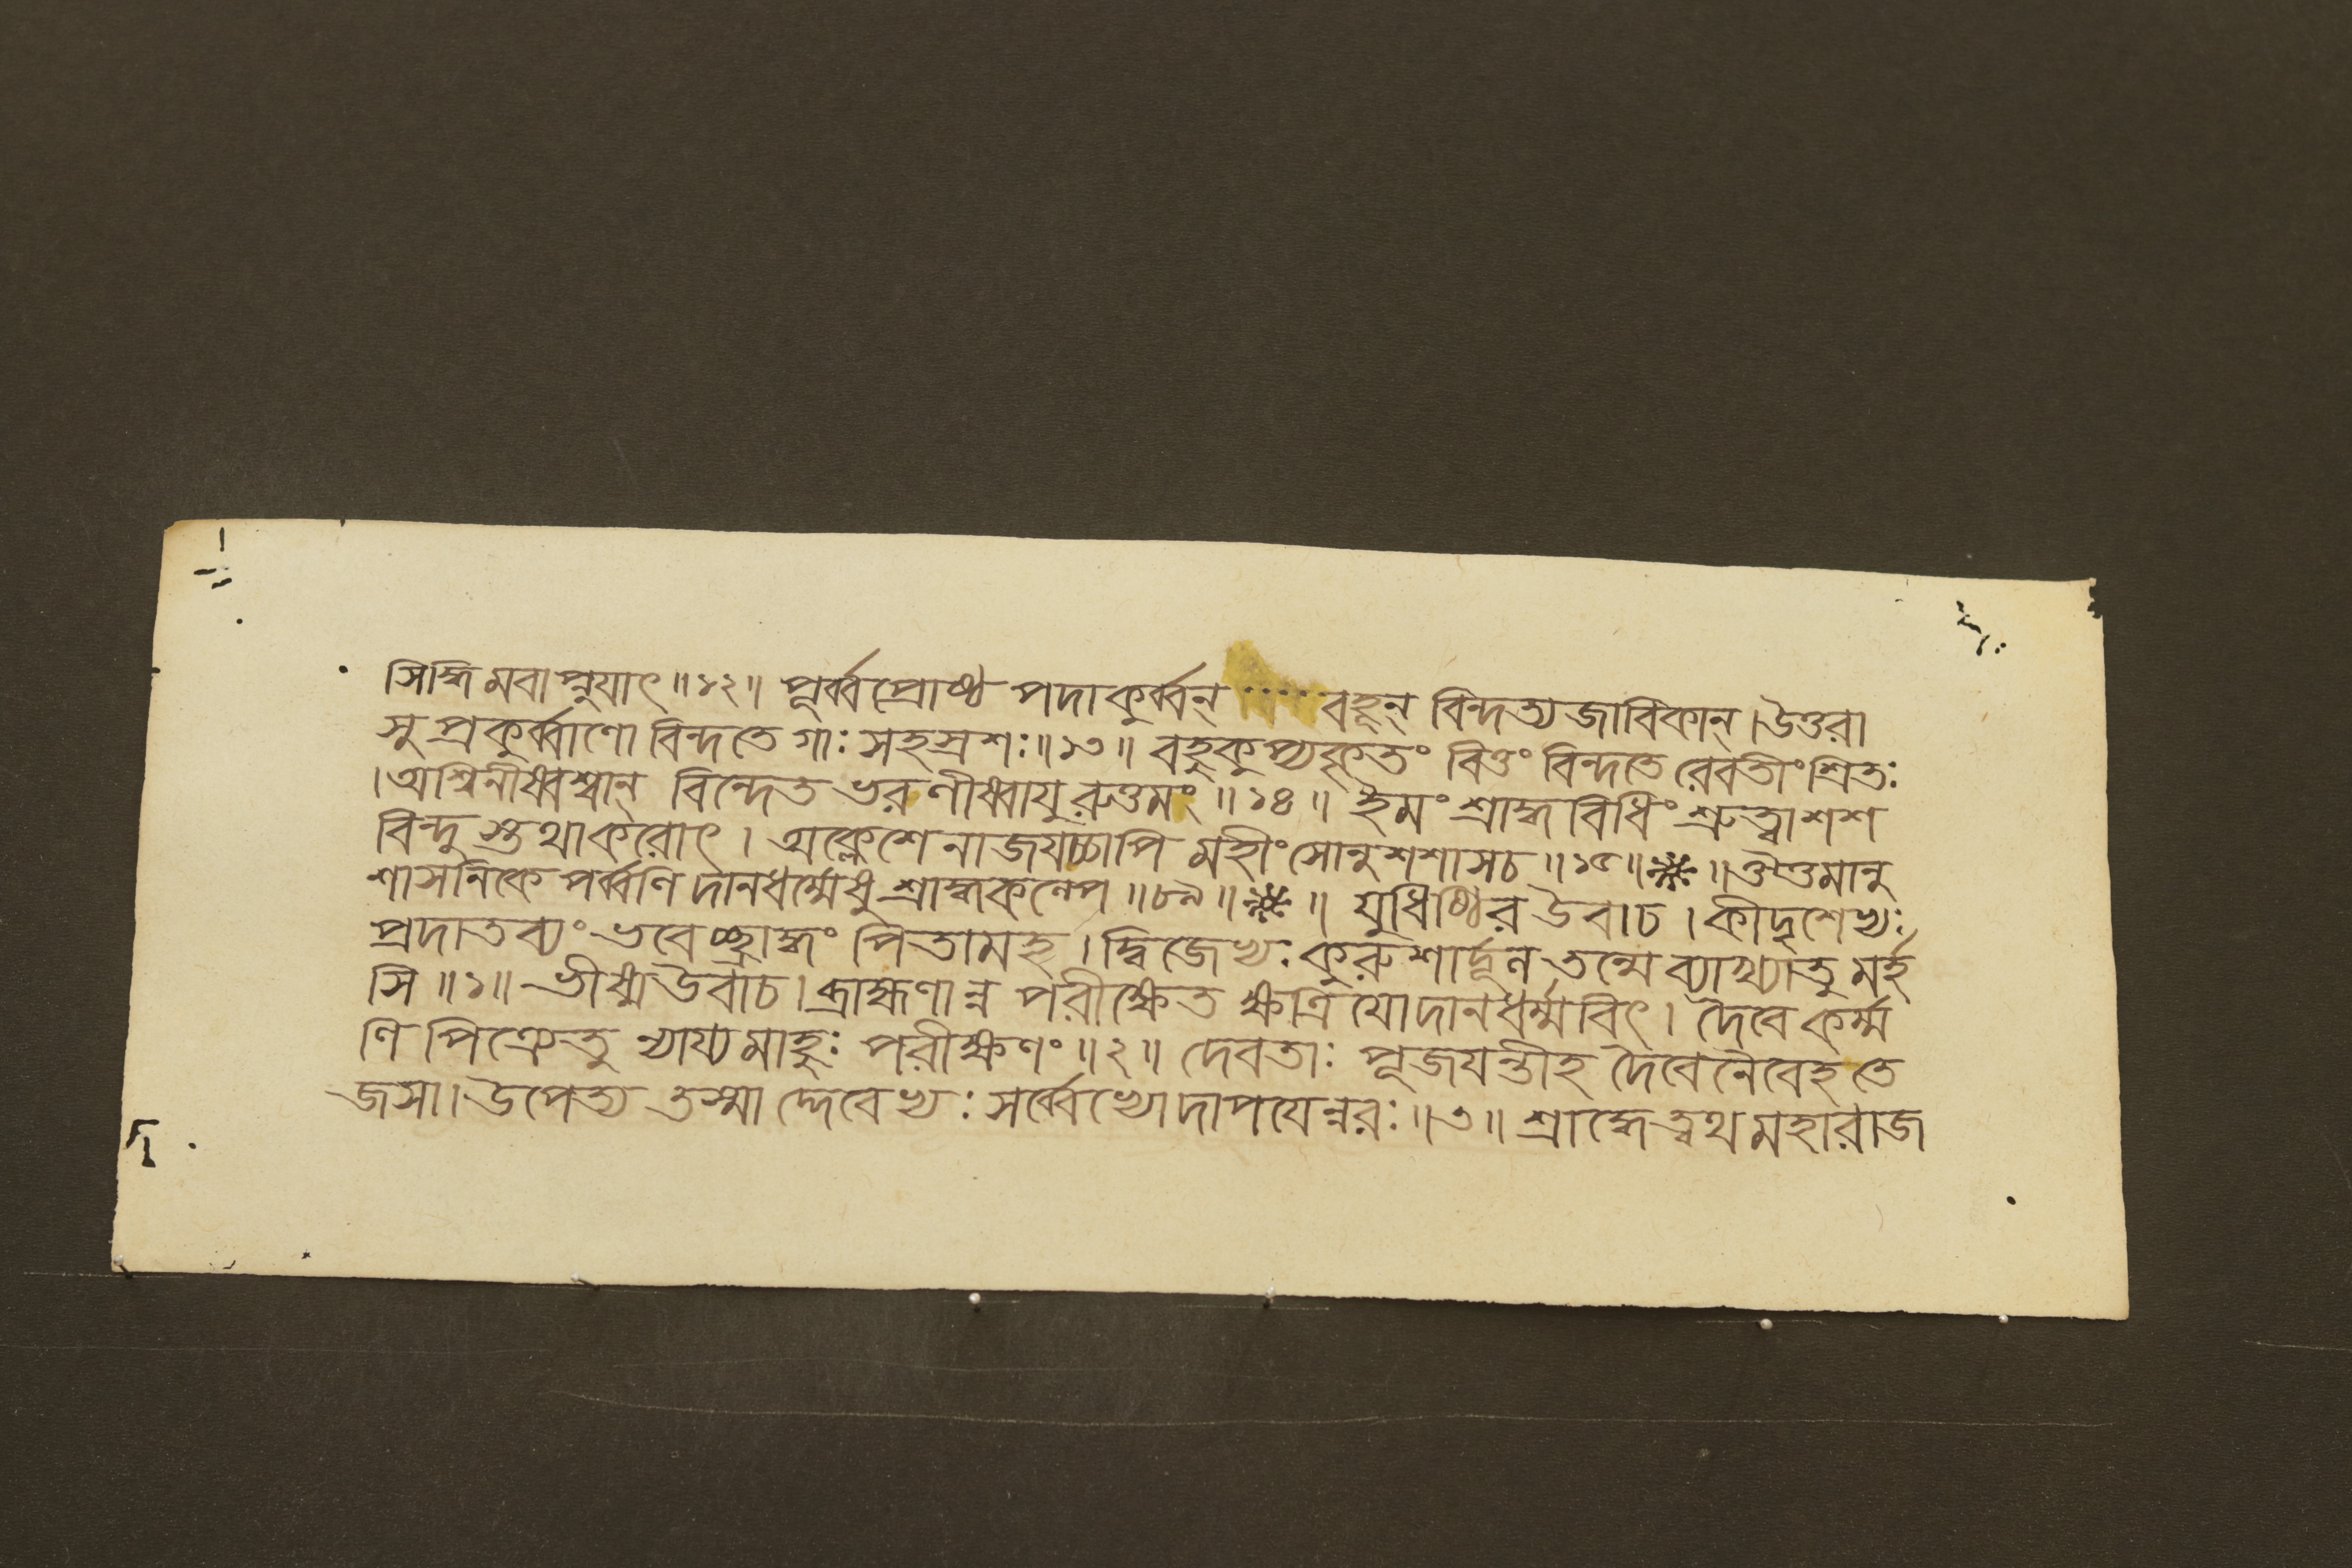 সিদ্ধিমবাপ্নুযাৎ॥১২॥ পূর্ব্বপ্রোষ্ঠ পদাকুর্ব্বন্ ···· বহূন্ বিন্দত্যজাবিকান্।উত্তরা
সু প্রকুর্ব্বাণো বিন্দতে গাঃ সহস্রশঃ॥১৩॥ বহুকুপ্যকৃতং বিত্তং বিন্দতে রেবতীং শ্রিতঃ
।অশ্বিনীষ্বশ্বান্ বিন্দেত ভরণীষ্বাযুরুত্তমং॥১৪॥ ইমং শ্রাদ্ধবিধিং শ্রুত্বা শশ
বিন্দুস্তথাকরোৎ। অক্লেশেনাজযচ্চাপি মহীং সোনুশশাসচ॥১৫॥※॥ঔত্তমানু
শাসনিকে পর্ব্বণি দানধর্ম্মেষু শ্রাদ্ধকল্পে॥৮৯॥※॥ যুধিষ্ঠির উবাচ। কীদৃশেভ্যঃ
প্রদাতব্যং ভবেচ্ছ্রাদ্ধং পিতামহ। দ্বিজেভ্যঃ কুরুশার্দ্দূল তন্মে ব্যাখ্যাতুমর্হ
সি॥১॥ ভীষ্মউবাচ। ব্রাহ্মণান্ন পরীক্ষেত ক্ষত্রিযোদানধর্ম্মবিৎ। দৈবে কর্ম্ম
ণি পিত্রেতু ন্যায্যমাহুঃ পরীক্ষণং॥২॥ দেবতাঃ পূজযন্তীহ দৈবেনৈবেহ তে
জসা। উপেত্য তস্মাদ্দেবেভ্যঃ সর্ব্বেভ্যোদাপযেন্নরঃ॥৩॥ শ্রাদ্ধেত্বথ মহারাজ